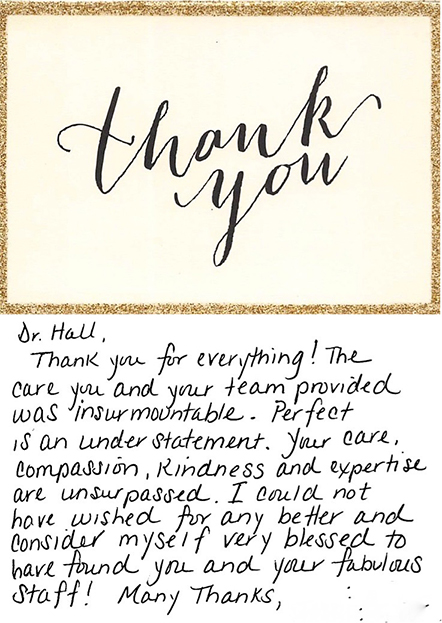 thank
you
Dr. Hall,
Thank you for everything! The
care you and your team provided
was insurmountable. Perfect
is an understatement. Your care,
compassion, kindness and expertise
are unsurpassed. I could not
have wished for any better and
consider myself very blessed to
have found you and your fabulous
staff! Many Thanks,